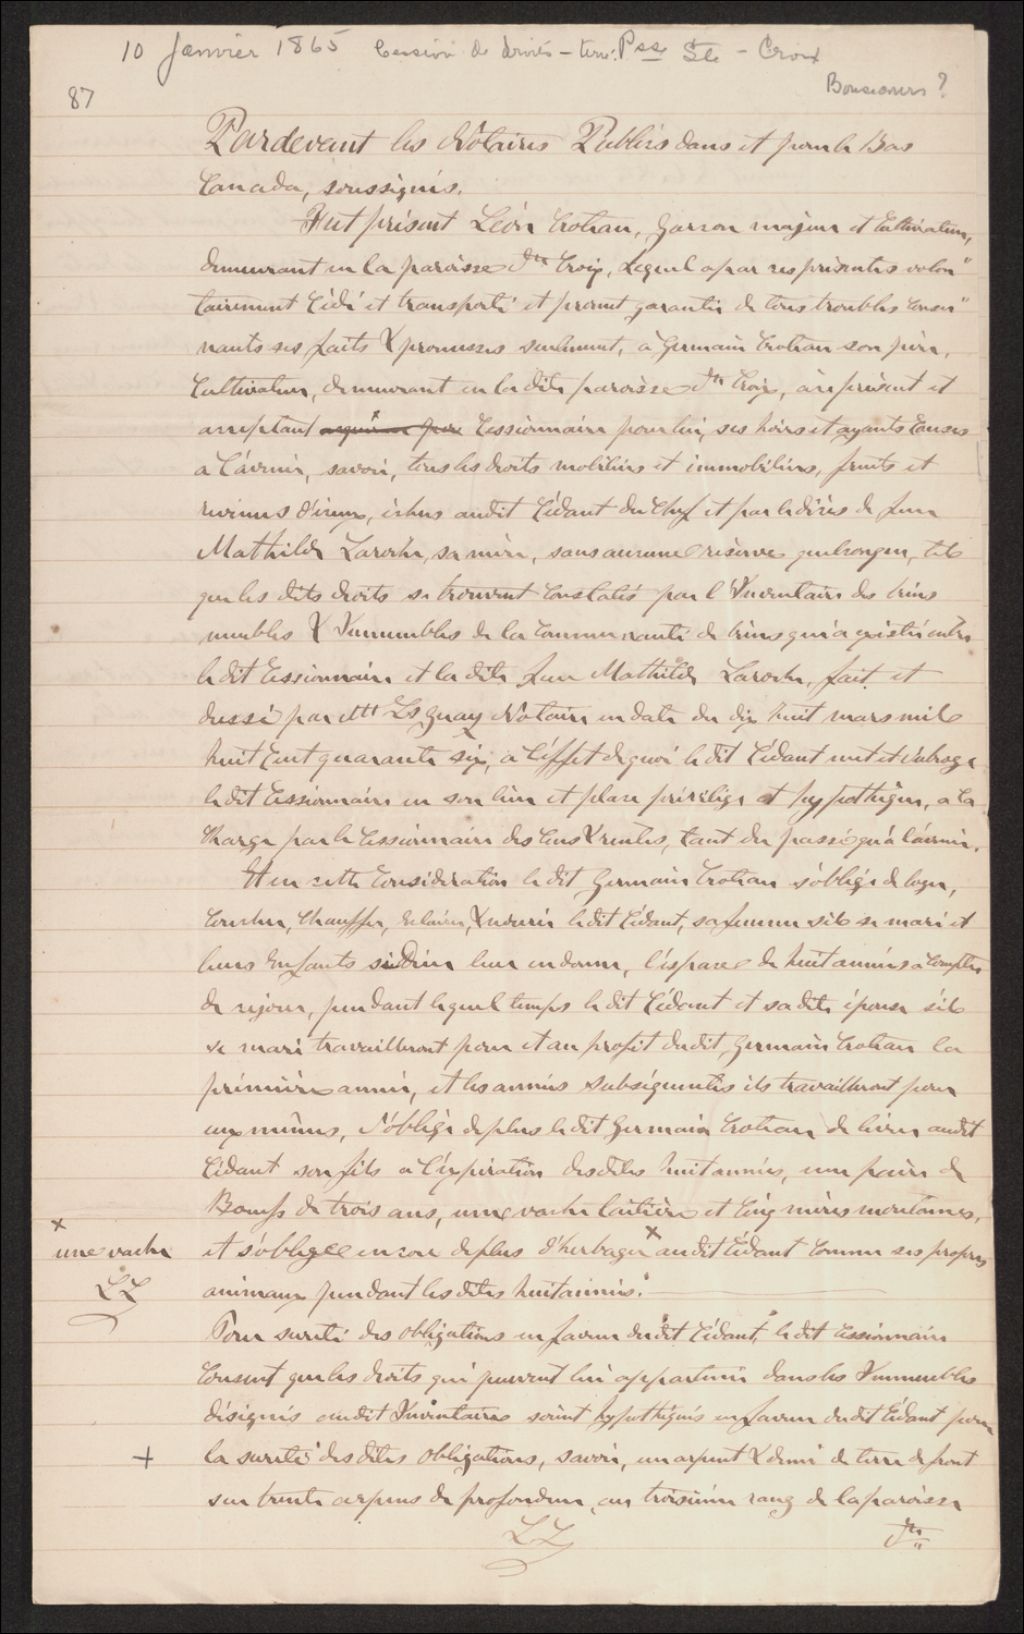 10 Janvier 1865 Cession de droits - terre: Psse Ste - Croix
87
Pardevant les Notaires Publics dans et pour le Bas
Canada, soussignés.
Fut présent Léon Crotian, Garson majeur et Cultivateur,
demeurant en la paroisse Ste Croix, Lequel a par ces présentes volon"
tairement Cédé et transporté et promet garantir de tous troubles Concer"
nants ses faits & promesses seulement, à Germain Crotian son père,
Cultivateur, demeurant en la dite paroisse Ste Croix, à ce présent et
acceptant Cessionnaire pour lui, ses hoirs et ayants Causes
a L'avenir, savoir, tous les droits mobiliers et immobiliers, fruits et
revenus d'iceux, échus audit Cédant du Chef et par le décès de feue
Mathilde Laroche, sa mère, sans aucune réserve quelconque, tels
que les dits droits se trouvent Constatés par l'Inventaire des biens
meubles & Immeubles de la Communauté de biens qui a existé entre
le dit Cessionnaire et la dite feue Mathilde Laroche, fait et
dressé par Mtre Ls Guay Notaire en date du dix huit mars mil
huit Cent quarante six, a L'effet de quoi le dit Cédant met et subroge
le dit Cessionnaire en son lieu et place privilège et hypothèque, a la
Charge par le Cessionnaire des Cens & rentes, tant du passé qu'à l'avenir.
Et en cette Considération le dit Germain Crotian s'oblige de loger,
Coucher, Chauffer, Eclairer, & nourir le dit Cédant, sa femme s'ils se marient
leurs Enfants si Dieu leur en donne, l'espace de huit années à Compter
de ce jour, pendant lequel temps le dit Cédant et sa dite épouse s'il
se marie travailleront pour et au profit dudit Germain Crotian la
première année, et les années subséquentes ils travailleront pour
eux mêmes, S'oblige de plus le dit Germain Crotian de livrer audit
Cédant son fils a l'expiration desdites huit années, une paire de
Boeufs de trois ans, une vache laitière et Cinq mères moutonnes,
x
une vache
et s'oblige encore de plus d'herbager x audit Cédant Comme ses propres
LL
animaux pendant les dites huit années.
Pour sureté des obligations en faveur dudit Cédant, le dit Cessionnaire
Consent que les droits qui peuvent lui appartenir dans les Immeubles
désignés audit Inventaire soient hypothéqués en faveur dudit Cédant pour
+ la sureté des dites obligations, savoir, un arpent & demi de terre de front
sur trente arpens de profondeur, au troisième rang de la paroisse
LL
Ste